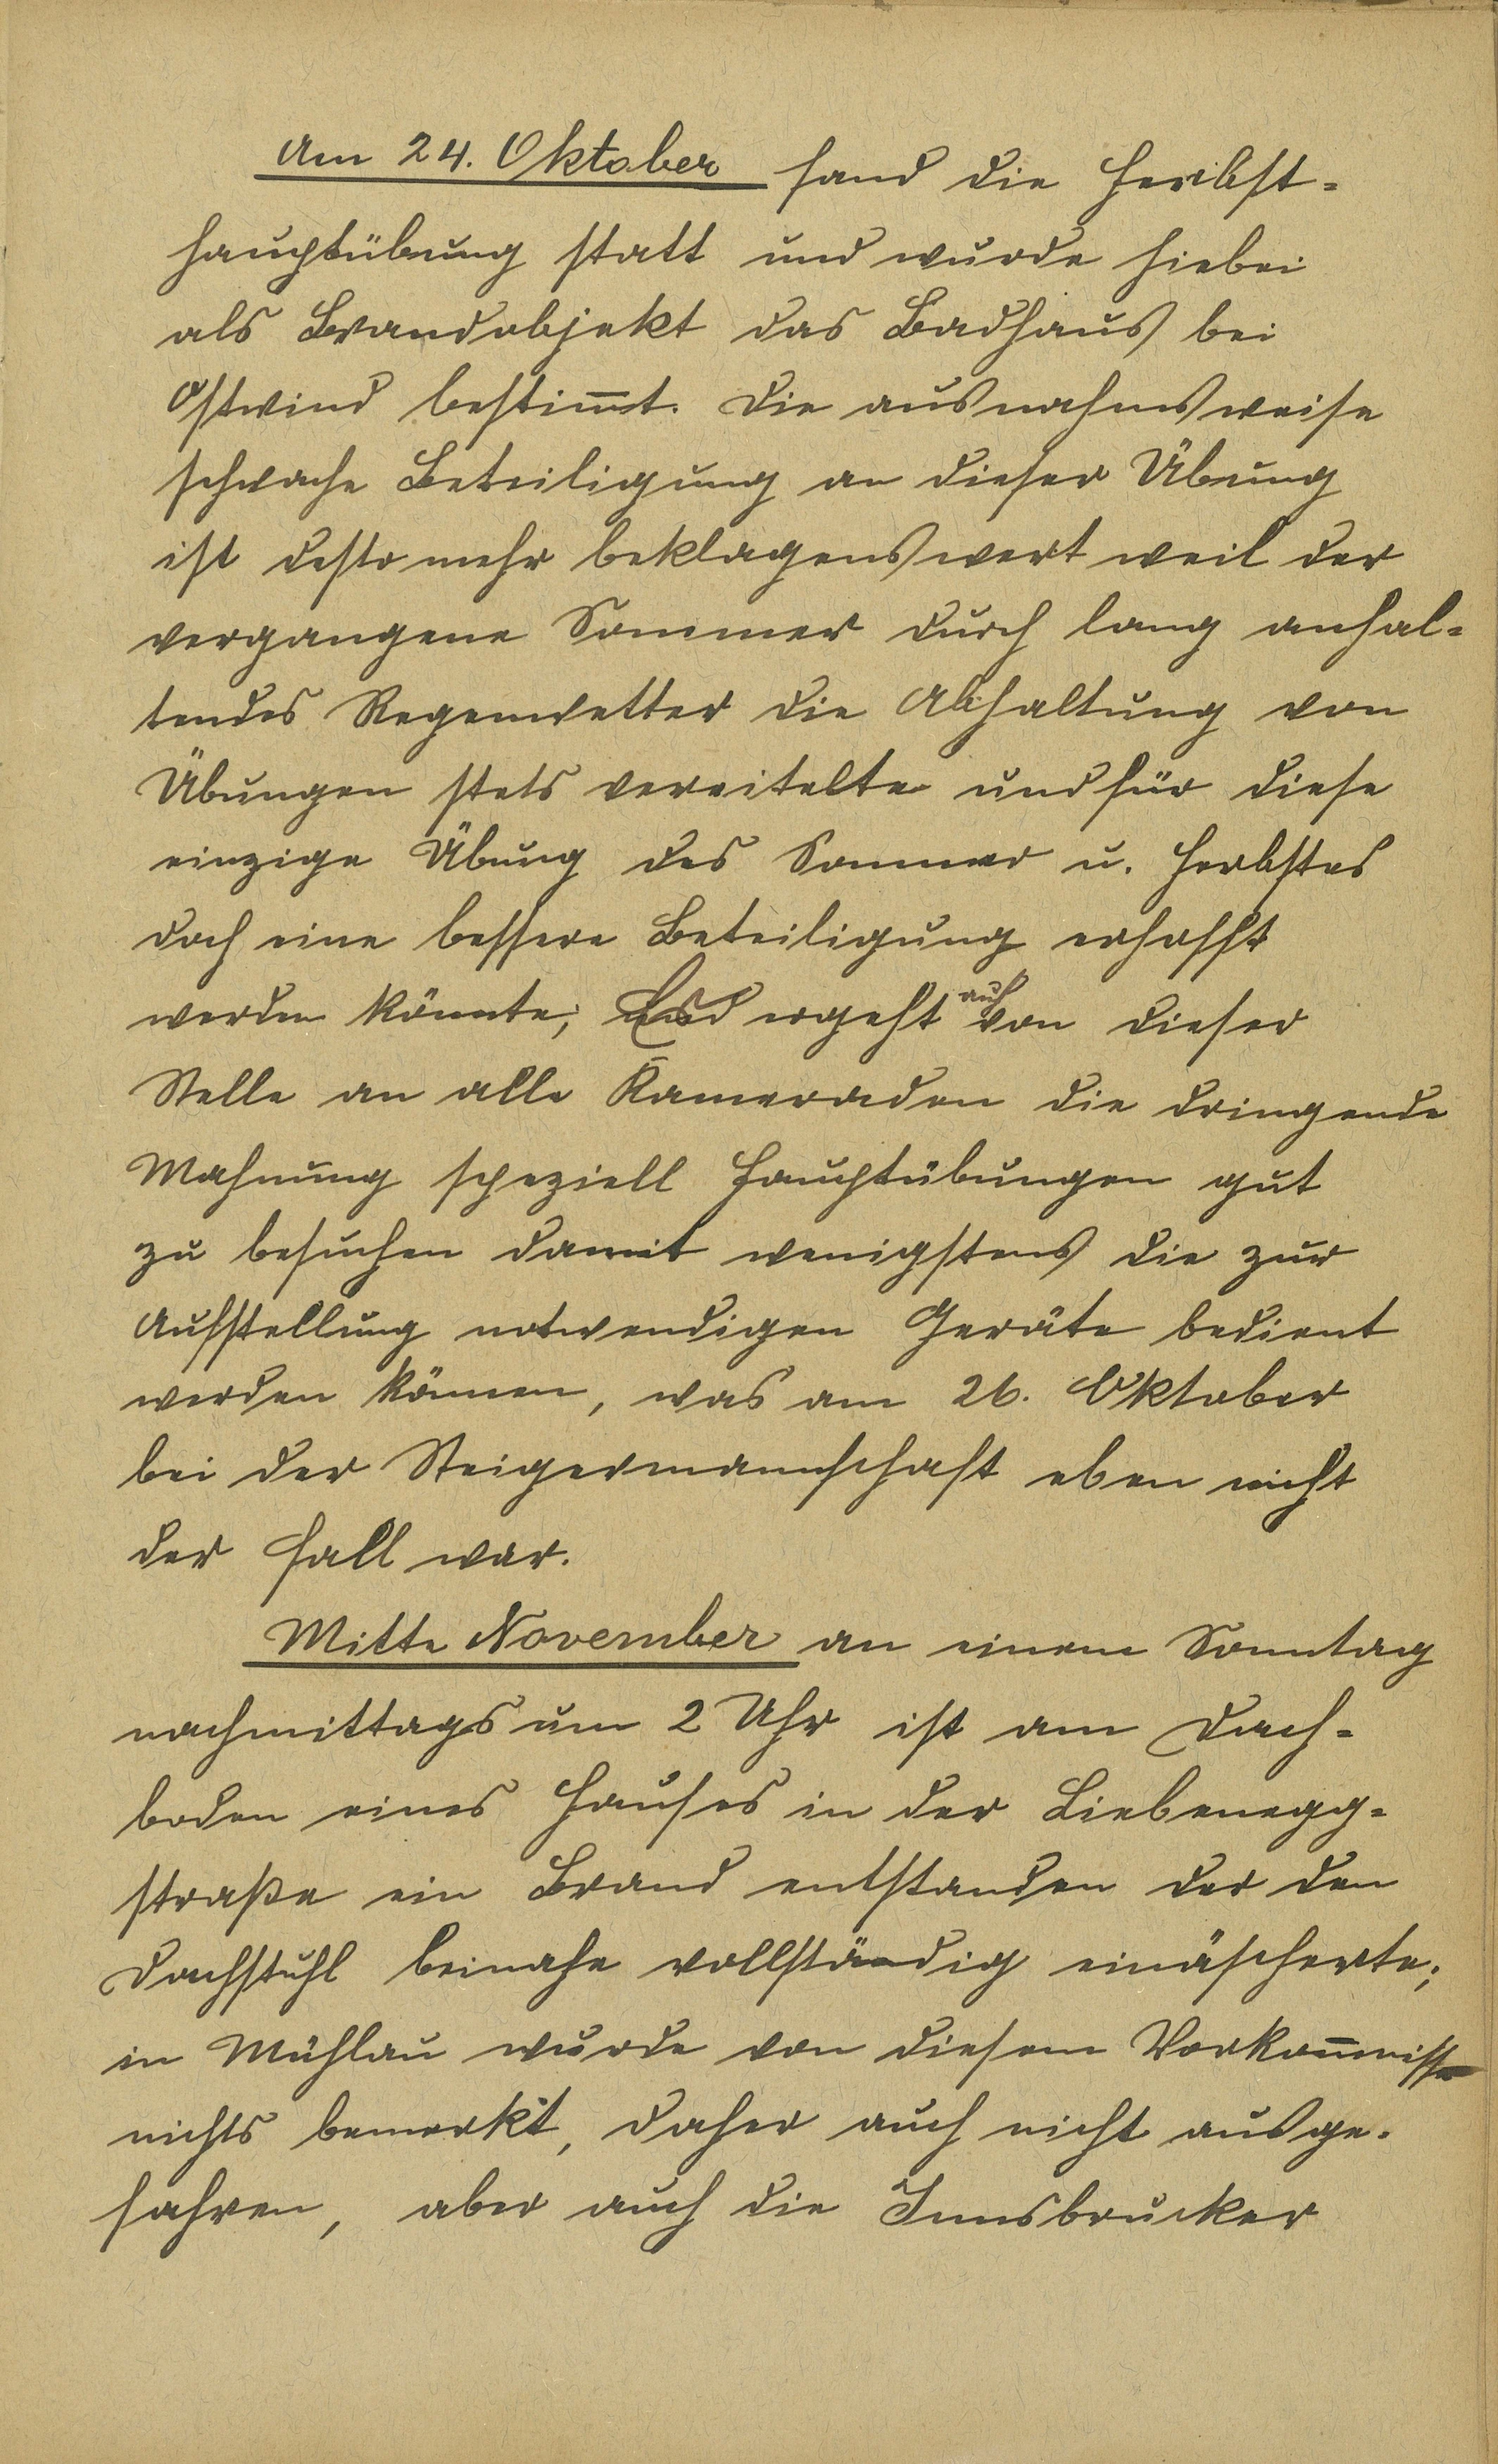 Am 24. Oktober fand die Herbst=
hauptübung statt und wurde hiebei
als Brandobjekt das Badhaus bei
Ostwind bestim̅t. Die ausnahmsweise
schwache Beteiligung an dieser Übung
ist desto mehr beklagenswert weil der
vergangene Sommer durch lang anhal=
tendes Regenwetter die Abhaltung von
Übungen stets vereitelte und für diese
einzige Übung des Sommer u. Herbstes
doch eine bessere Beteiligung erhofft
werden könnte; Es ergeht auch von dieser
Stelle an alle Kameraden die dringende
Mahnung speziell Hauptübungen gut
zu besuchen damit wenigstens die zur
Aufstellung notwendigen Geräte bedient
werden können, was am 26. Oktober
bei der Steigermannschaft eben nicht
der Fall war.
Mitte November an einem Sonntag
nachmittags um 2 Uhr ist am Dach=
boden eines Hauses in der Liebenegg=
straße ein Brand entstanden der den
Dachstuhl beinahe vollständig einäscherte;
in Mühlau wurde von diesem Vorkom̅nisse
nichts bemerkt, daher auch nicht ausge=
fahren, aber auch die Innsbrucker